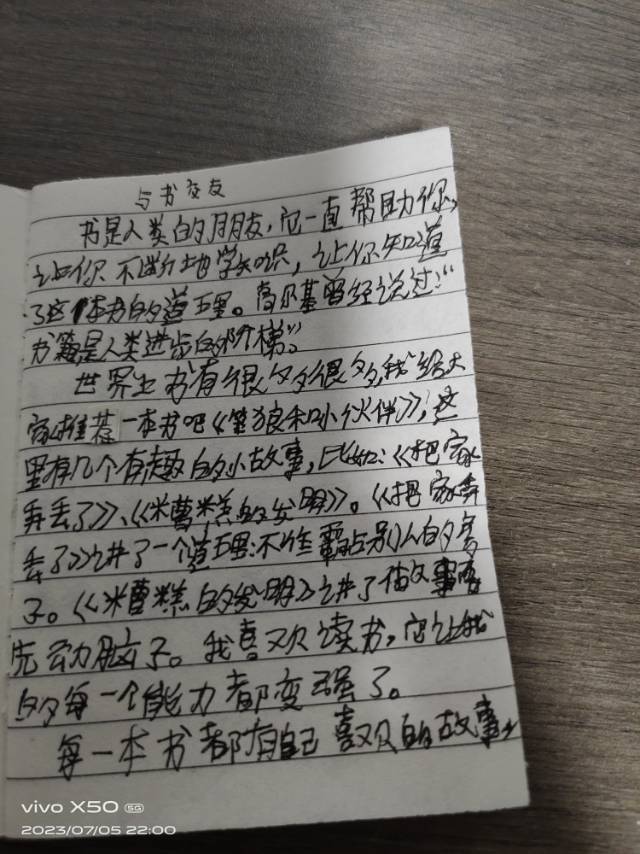 与书交友
书是人类的朋友,它一直帮助你,
让你不断地学知识,让你知道
了这1本书的道理。高尔基曾经说过:“
书籍是人类进步的阶梯”。
世界上书有很多很多,我给大
家推荐一本书吧《笨狼和小伙伴》,这
里有几个有趣的小故事,比如:《把家
弄丢了》、《米糟糕的发明》。《把家弄
丢了》讲了一个道理:不能霸占别人的房
子。《米糟糕的发明》讲了做事要
先动脑子。我喜欢读书,它让我
的每一个能力都变强了。
每一本书都有自己喜欢的故事,
vivo X50 5G
2023/07/05 22:00